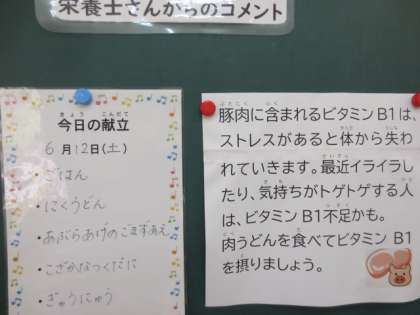 栄養士さんからのコメント
今日の献立
6月12日(土)
・ごはん
・にくうどん
・あぶらあげのごまずあえ
・こざかなつくだに
・ぎゅうにゅう
豚肉に含まれるビタミン B1は、
ストレスがあると体から失わ
れていきます。最近イライラし
たり、気持ちがトゲトゲする人
は、ビタミン B1不足かも。
肉うどんを食べてビタミン B1
を摂りましょう。